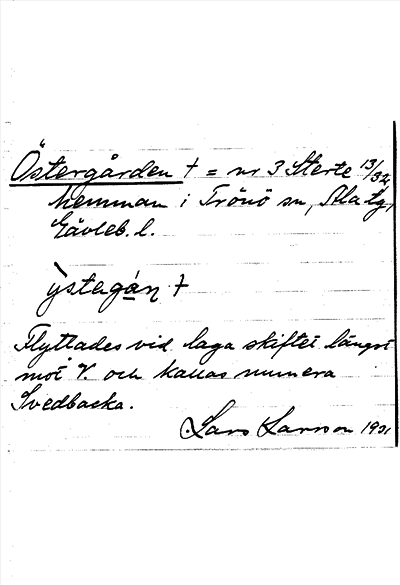 Östergården † = nr 3 Sterte 13/32
hemman i Trönö sn, Ala tg,
Gävleb. l.
Flyttades vid laga skiftet längst
mot V. och kallas numera
Svedbacka.
Lars Larsson 1921